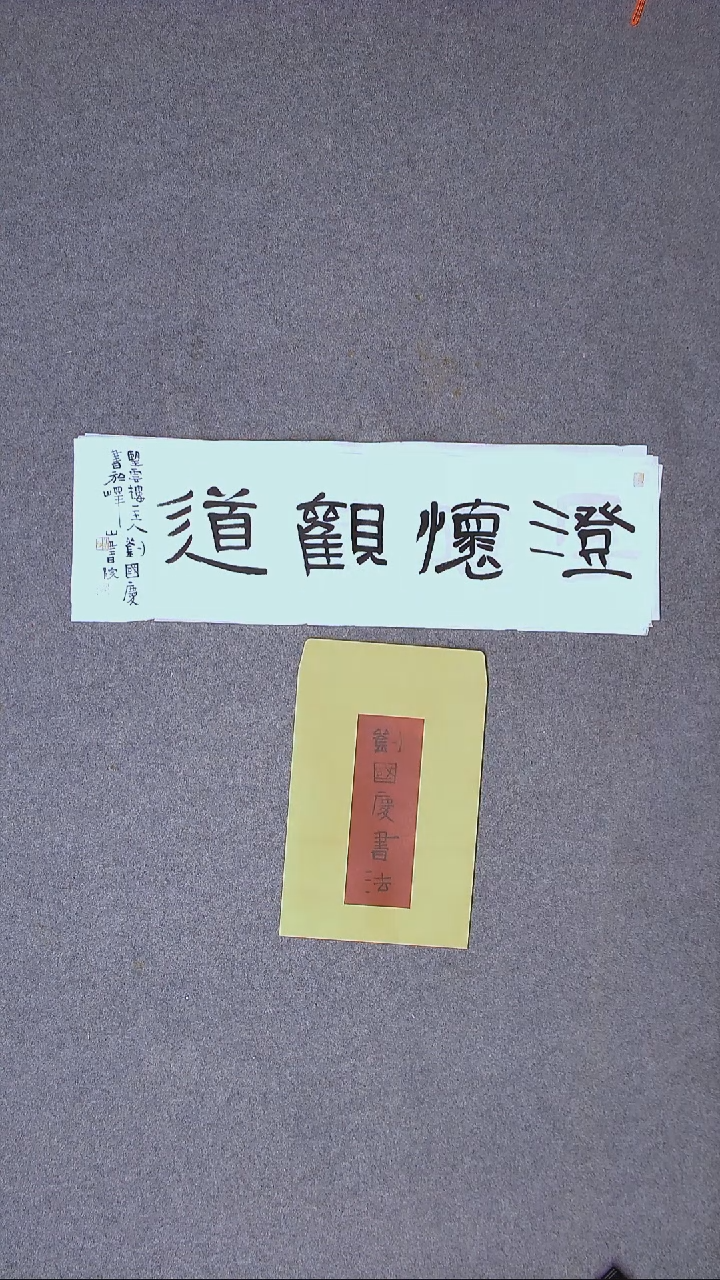 澄懷觀道
望雲樓主人劉國慶
書於嶧山
劉國慶書法